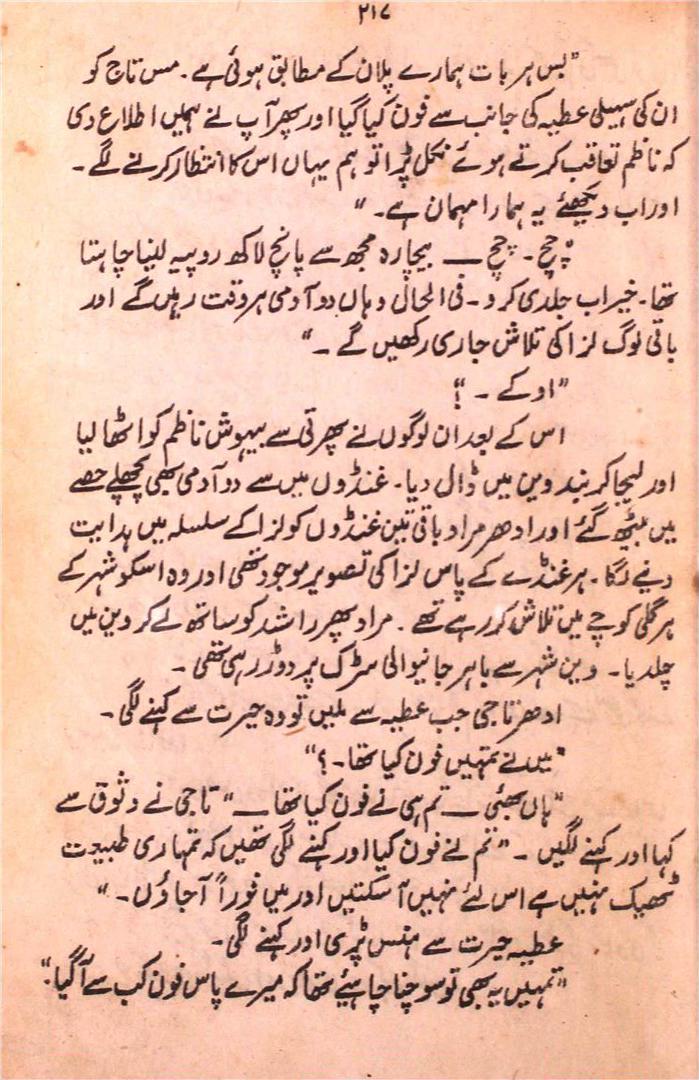 ۲۱۷
"بس ہر بات ہمارے پلان کے مطابق ہوئی ہے۔ مس تاج کو
ان کی سہیلی عطیہ کی جانب سے فون کیا گیا اور پھر آپ نے ہمیں اطلاع دی
کہ ناظم تعاقب کرتے ہوئے نکل پڑا تو ہم یہاں اس کا انتظار کرنے لگے۔
اور اب دیکھئے یہ ہمارا مہمان ہے۔"
"چچ۔ چچ — بیچارہ مجھ سے پانچ لاکھ روپیہ لینا چاہتا
تھا۔ خیر اب جلدی کرو۔ فی الحال وہاں دو آدمی ہر وقت رہیں گے اور
باقی لوگ لزا کی تلاش جاری رکھیں گے۔"
"اوکے۔"؟
اس کے بعد ان لوگوں نے پھرتی سے بیہوش ناظم کو اٹھا لیا
اور لیجا کر بند وین میں ڈال دیا۔ غنڈوں میں سے دو آدمی بھی پچھلے حصے
میں بیٹھ گئے اور ادھر مراد باقی تین غنڈوں کو لزا کے سلسلہ میں ہدایت
دینے لگا۔ ہر غنڈے کے پاس لزا کی تصویر موجود تھی اور وہ اسکو شہر کے
ہر گلی کوچے میں تلاش کر رہے تھے۔ مراد پھر راشد کو ساتھ لے کر وین میں
چلدیا۔ وین شہر سے باہر جانیوالی سڑک پر دوڑ رہی تھی۔
ادھر تاجی جب عطیہ سے ملیں تو وہ حیرت سے کہنے لگی۔
"میں نے تمہیں فون کیا تھا۔؟"
"ہاں بھئی — تم ہی نے فون کیا تھا —" تاجی نے وثوق سے
کہا اور کہنے لگیں۔ "تم نے فون کیا اور کہنے لگی تھیں کہ تمہاری طبیعت
ٹھیک نہیں ہے اس لئے نہیں آ سکتیں اور میں فوراً آ جاؤں۔"
عطیہ حیرت سے ہنس پڑی اور کہنے لگی۔
"تمہیں یہ بھی تو سوچنا چاہیئے تھا کہ میرے پاس فون کب سے آ گیا۔"